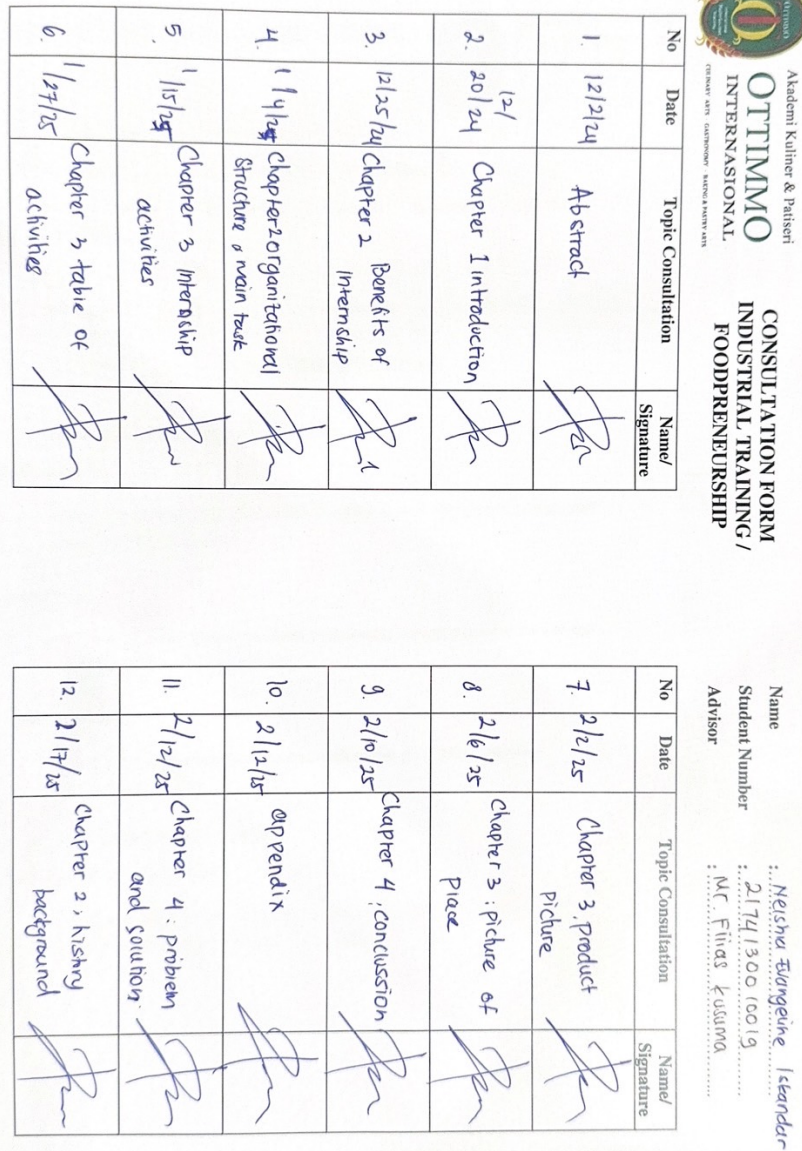 Akademi Kuliner & Patiseri
OTTIMMO
INTERNASIONAL
CULINARY ARTS GASTRONOMY BAKING & PASTRY ARTS
CONSULTATION FORM
INDUSTRIAL TRAINING /
FOODPRENEURSHIP
Name : Neisha Evangeline Iskandar
Student Number : 2174130010019
Advisor : Mr. Filias Kusuma
No Date Topic Consultation Name/
Signature
1. 12/2/24 Abstract
2. 12/
20/24 Chapter 1 introduction
3. 12/25/24 Chapter 2 Benefits of
Internship
4. 1/4/25 Chapter 2 organizational
Structure & main task
5. 1/15/25 Chapter 3 Internship
activities
6. 1/27/25 Chapter 3 table of
activities
No Date Topic Consultation Name/
Signature
7. 2/2/25 Chapter 3, product
picture
8. 2/6/25 Chapter 3 : picture of
place
9. 2/10/25 Chapter 4 : conclussion
10. 2/12/25 appendix
11. 2/12/25 Chapter 4 : problem
and solution.
12. 2/17/25 Chapter 2 ; history
background